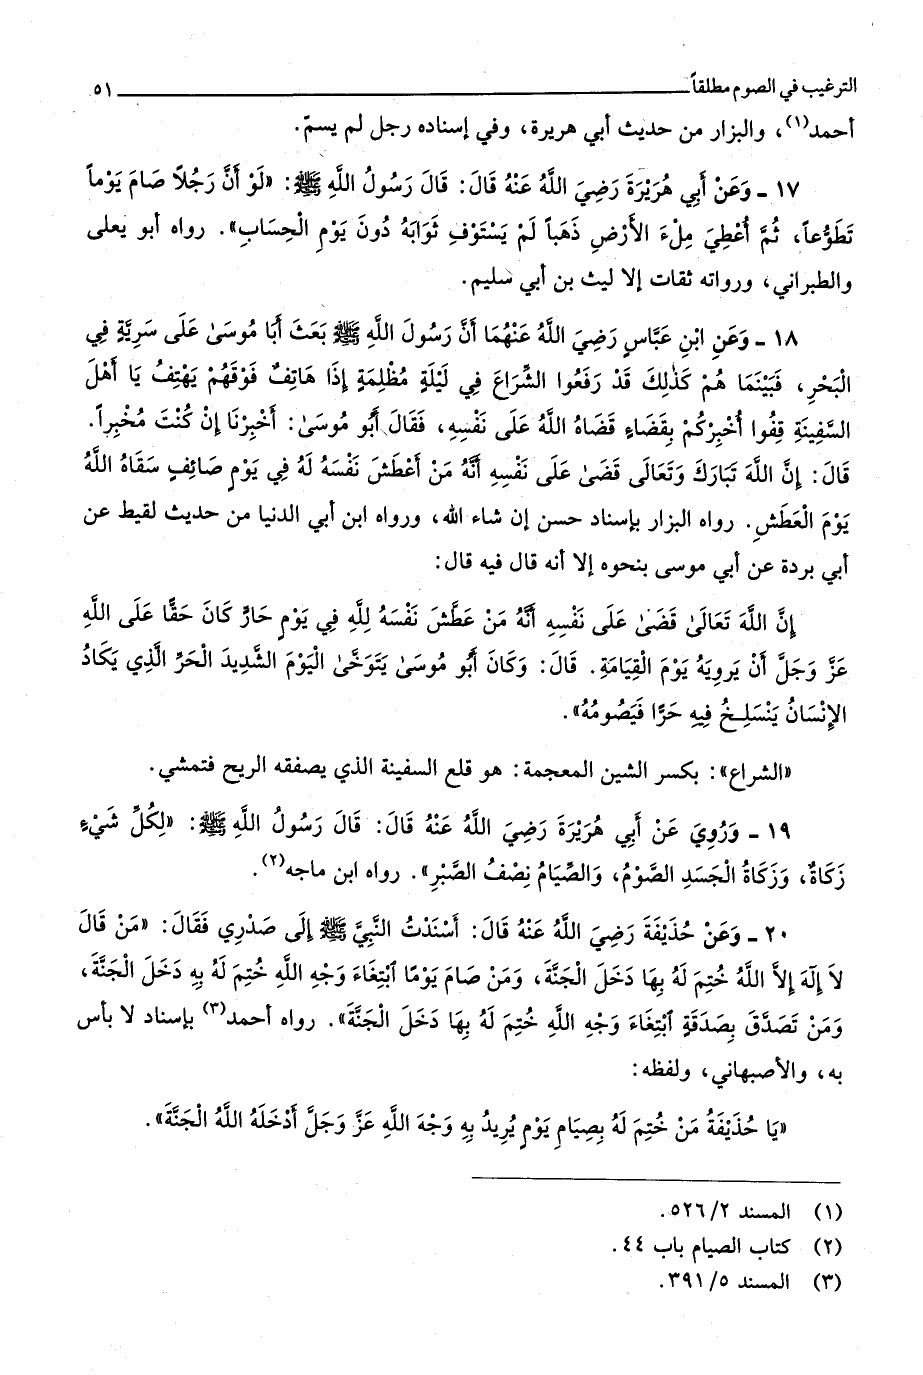 الترغيب في الصوم مطلقاً ٥١
أحمد(١)، والبزار من حديث أبي هريرة، وفي إسناده رجل لم يسمّ.
١٧ ـ وَعَنْ أَبِي هُرَيْرَةَ رَضِيَ اللَّهُ عَنْهُ قَالَ: قَالَ رَسُولُ اللَّهِ ﷺ: «لَوْ أَنَّ رَجُلاً صَامَ يَوْماً
تَطَوُّعاً، ثُمَّ أُعْطِيَ مِلْءَ الأَرْضِ ذَهَباً لَمْ يَسْتَوْفِ ثَوَابَهُ دُونَ يَوْمِ الْحِسَابِ». رواه أبو يعلى
والطبراني، ورواته ثقات إلا ليث بن أبي سليم.
١٨ ـ وَعَنِ ابْنِ عَبَّاسٍ رَضِيَ اللَّهُ عَنْهُمَا أَنَّ رَسُولَ اللَّهِ ﷺ بَعَثَ أَبَا مُوسَىٰ عَلَى سَرِيَّةٍ فِي
الْبَحْرِ، فَبَيْنَمَا هُمْ كَذٰلِكَ قَدْ رَفَعُوا الشِّرَاعَ فِي لَيْلَةٍ مُظْلِمَةٍ إِذَا هَاتِفٌ فَوْقَهُمْ يَهْتِفُ يَا أَهْلَ
السَّفِينَةِ قِفُوا أُخْبِرْكُمْ بِقَضَاءٍ قَضَاهُ اللَّهُ عَلَى نَفْسِهِ، فَقَالَ أَبُو مُوسَىٰ: أَخْبِرْنَا إِنْ كُنْتَ مُخْبِراً.
قَالَ: إِنَّ اللَّهَ تَبَارَكَ وَتَعَالَى قَضَىٰ عَلَى نَفْسِهِ أَنَّهُ مَنْ أَعْطَشَ نَفْسَهُ لَهُ فِي يَوْمٍ صَائِفٍ سَقَاهُ اللَّهُ
يَوْمَ الْعَطَشِ. رواه البزار بإسناد حسن إن شاء الله، ورواه ابن أبي الدنيا من حديث لقيط عن
أبي بردة عن أبي موسى بنحوه إلا أنه قال فيه قال:
إِنَّ اللَّهَ تَعَالَىٰ قَضَىٰ عَلَى نَفْسِهِ أَنَّهُ مَنْ عَطَّشَ نَفْسَهُ لِلَّهِ فِي يَوْمٍ حَارٍّ كَانَ حَقًّا عَلَى اللَّهِ
عَزَّ وَجَلَّ أَنْ يَرْوِيَهُ يَوْمَ الْقِيَامَةِ. قَالَ: وَكَانَ أَبُو مُوسَىٰ يَتَوَخَّىٰ الْيَوْمَ الشَّدِيدَ الْحَرِّ الَّذِي يَكَادُ
الإِنْسَانُ يَنْسَلِخُ فِيهِ حَرًّا فَيَصُومُهُ».
«الشراع»: بكسر الشين المعجمة: هو قلع السفينة الذي يصفقه الريح فتمشي.
١٩ ـ وَرُوِيَ عَنْ أَبِي هُرَيْرَةَ رَضِيَ اللَّهُ عَنْهُ قَالَ: قَالَ رَسُولُ اللَّهِ ﷺ: «لِكُلِّ شَيْءٍ
زَكَاةٌ، وَزَكَاةُ الْجَسَدِ الصَّوْمُ، وَالصِّيَامُ نِصْفُ الصَّبْرِ». رواه ابن ماجه(٢).
٢٠ ـ وَعَنْ حُذَيْفَةَ رَضِيَ اللَّهُ عَنْهُ قَالَ: أَسْنَدْتُ النَّبِيَّ ﷺ إِلَى صَدْرِي فَقَالَ: «مَنْ قَالَ
لاَ إِلٰهَ إِلاَّ اللَّهُ خُتِمَ لَهُ بِهَا دَخَلَ الْجَنَّةَ، وَمَنْ صَامَ يَوْمًا ٱبْتِغَاءَ وَجْهِ اللَّهِ خُتِمَ لَهُ بِهِ دَخَلَ الْجَنَّةَ،
وَمَنْ تَصَدَّقَ بِصَدَقَةٍ ٱبْتِغَاءَ وَجْهِ اللَّهِ خُتِمَ لَهُ بِهَا دَخَلَ الْجَنَّةَ». رواه أحمد(٣) بإسناد لا بأس
به، والأصبهاني، ولفظه:
«يَا حُذَيْفَةُ مَنْ خُتِمَ لَهُ بِصِيَامِ يَوْمٍ يُرِيدُ بِهِ وَجْهَ اللَّهِ عَزَّ وَجَلَّ أَدْخَلَهُ اللَّهُ الْجَنَّةَ».
(١) المسند ٥٢٦/٢.
(٢) كتاب الصيام باب ٤٤.
(٣) المسند ٣٩١/٥.